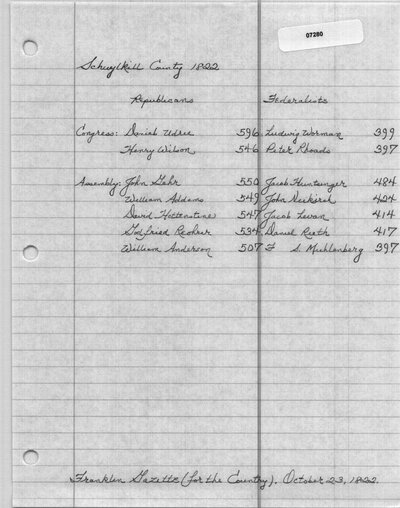 07280
Schuylkill County 1822
Republicans Federalists
Congress: Daniel Udree 596 Ludwig Worman 399
Henry Wilson 546 Peter Rhoads 397
Assembly: John Gehr 550 Jacob Huntzinger 484
William Addams 549 John 424
David Hottenstine 547 Jacob Levan 414
Godfried Reohrer 534 Daniel Rieth 417
William Anderson 507 F S. Muhlenberg 397
Franklin Gazette (for the Country). October 23, 1822.